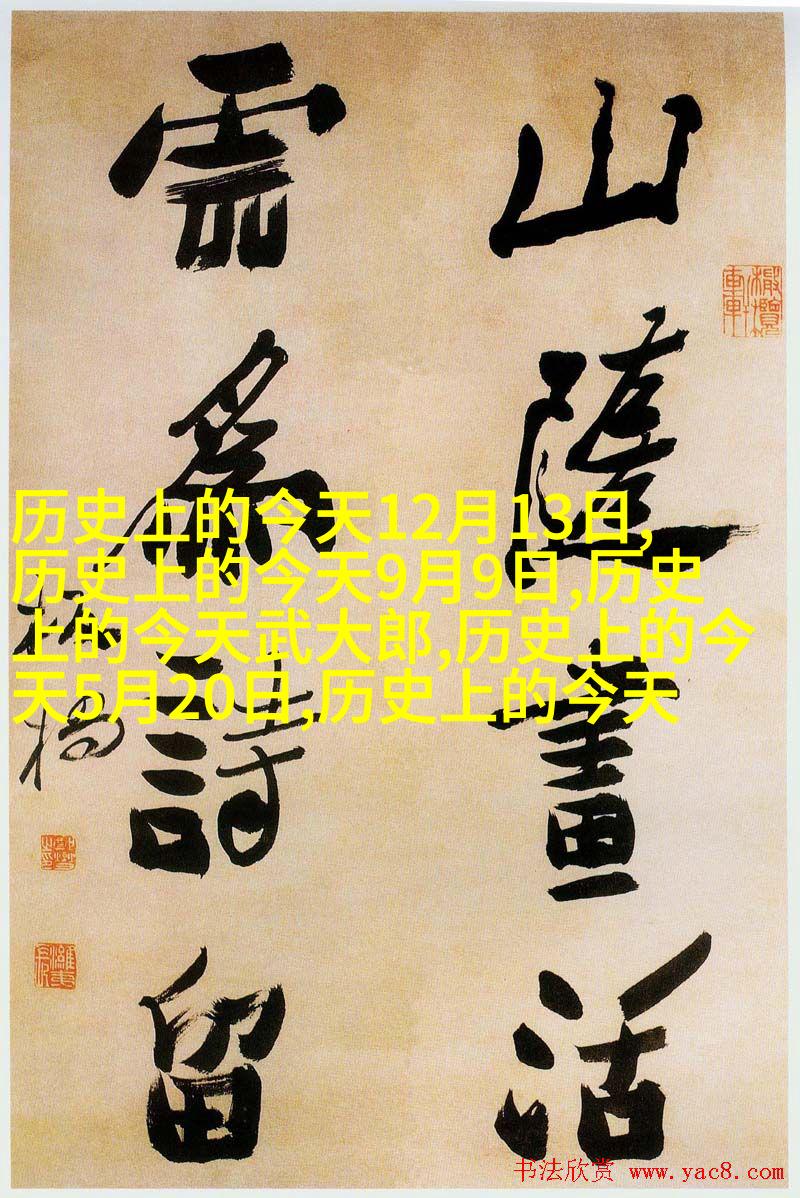 山隨畫活
雲爲詩留
板橋
历史上的今天12月13日,
历史上的今天9月9日,历史
上的今天武大郎,历史上的今
天5月20日,历史上的今天
书法欣赏 www.yac8.com